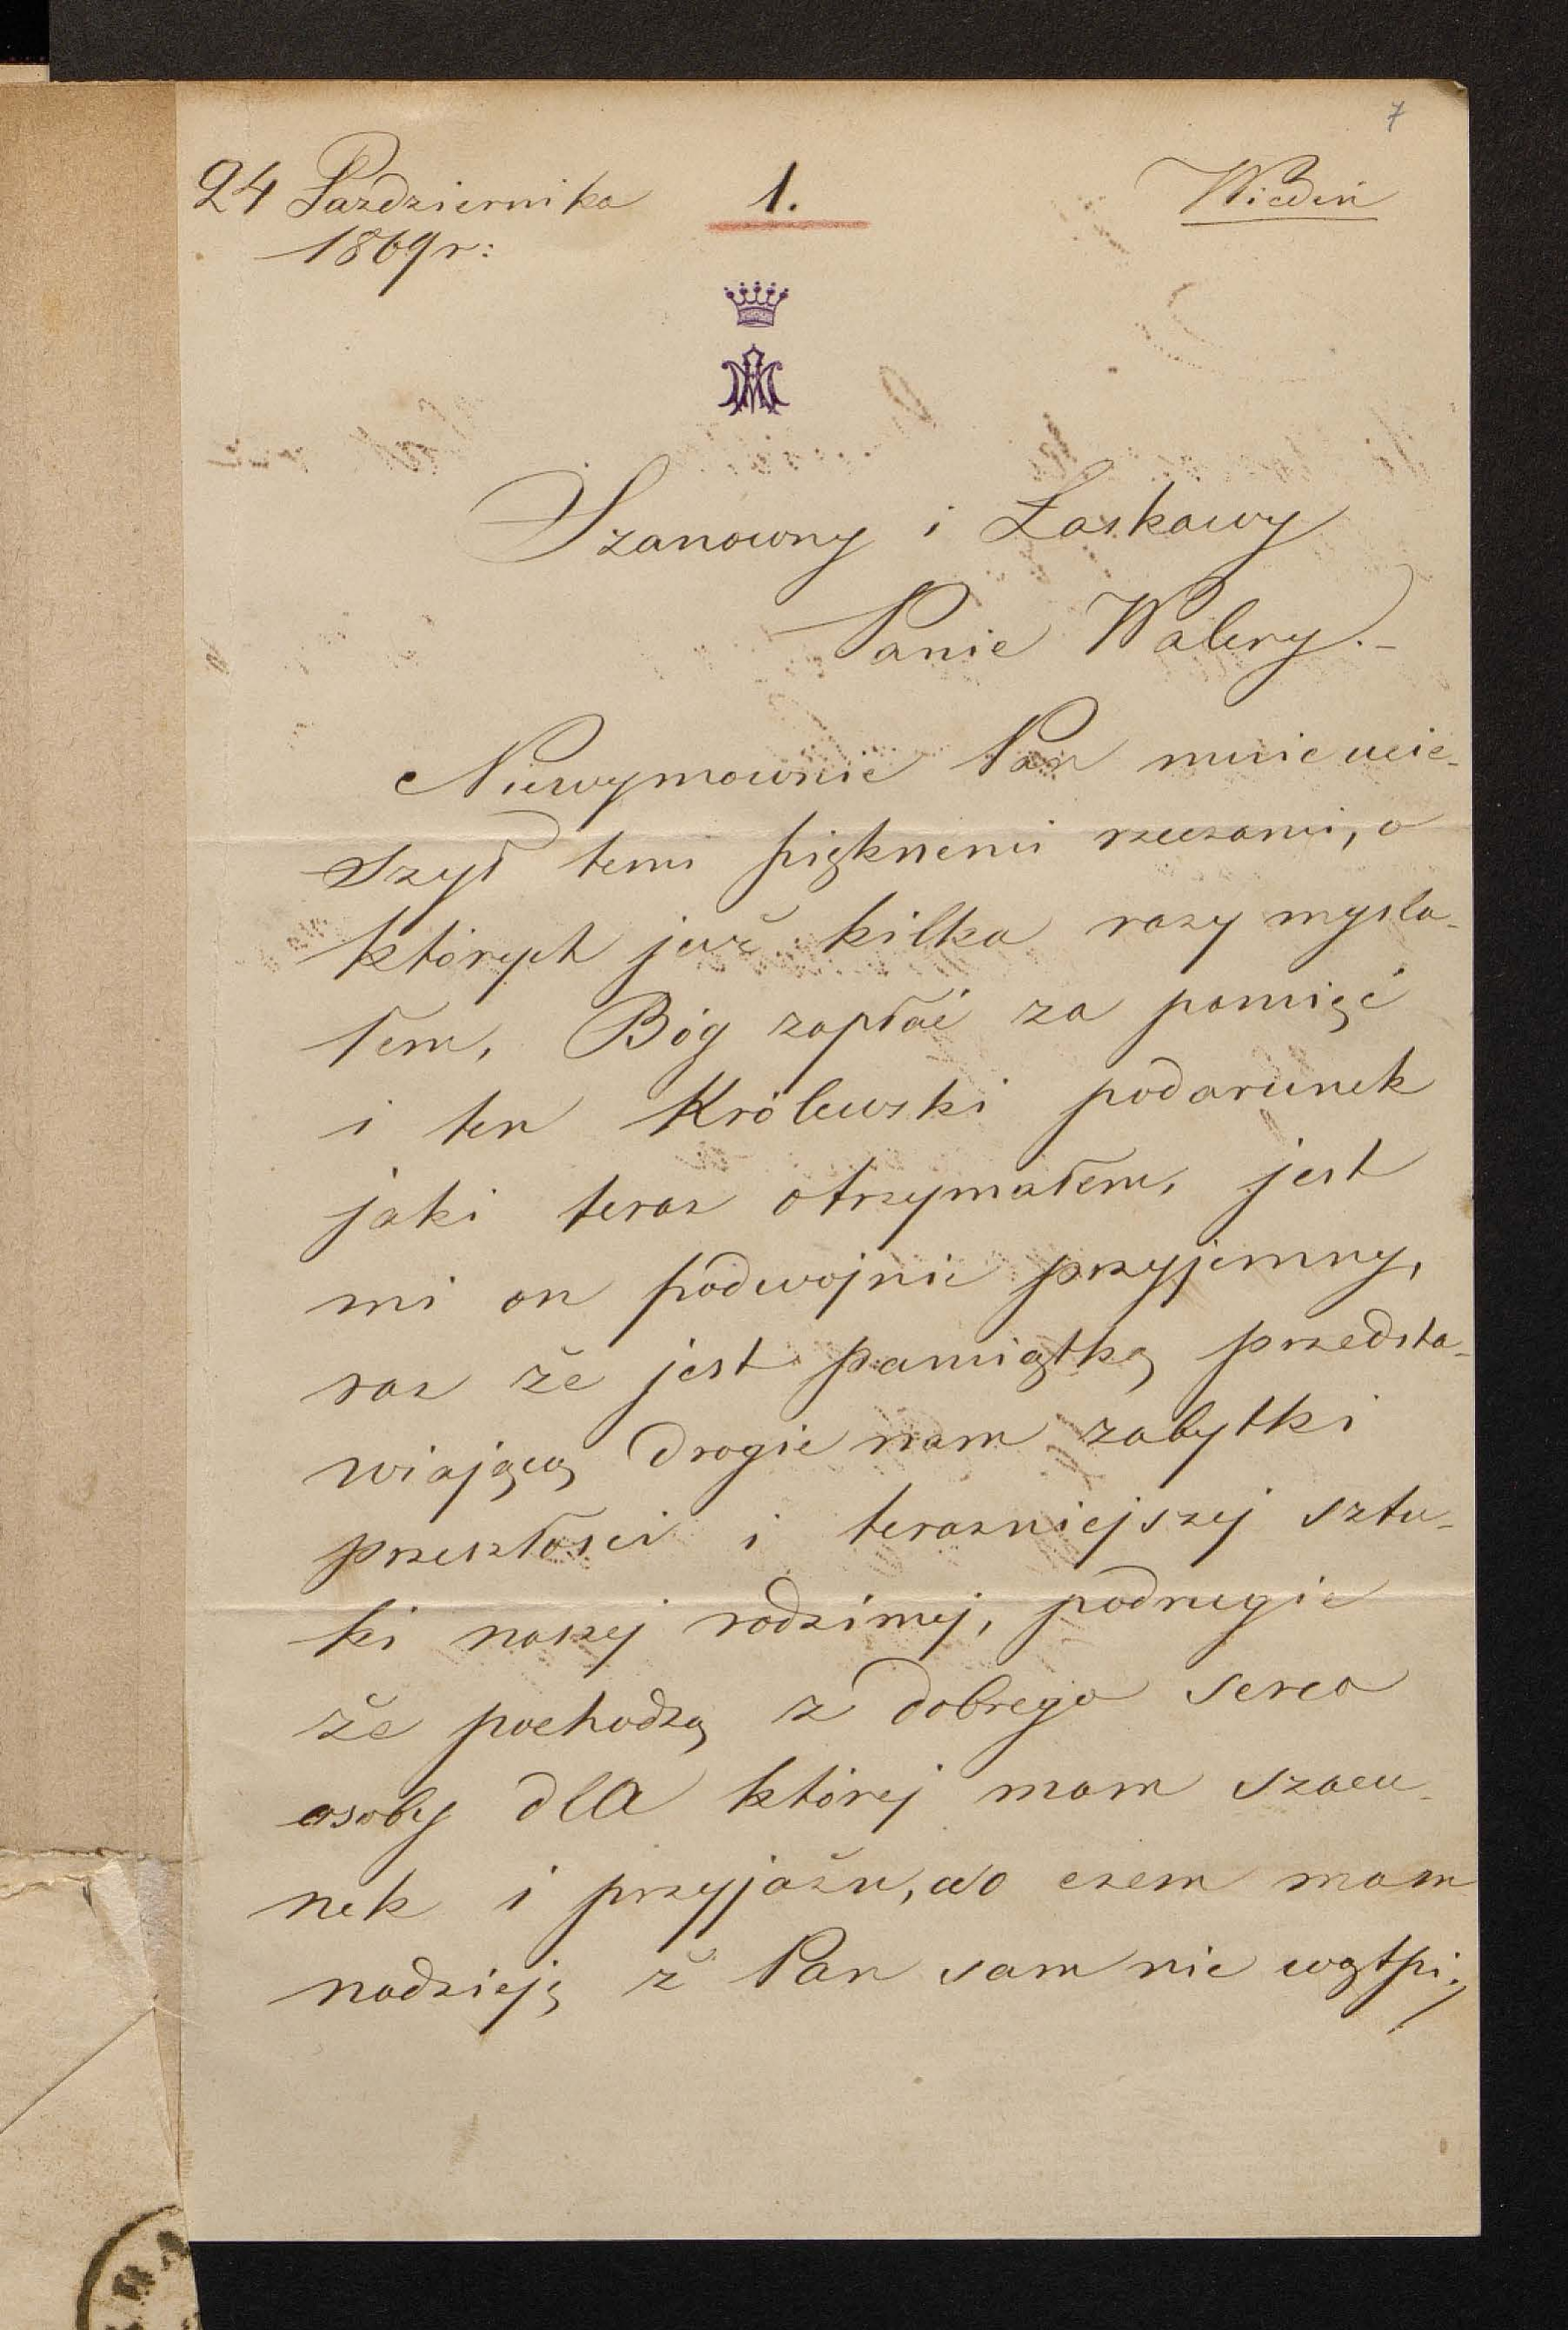 7
24 Pazdziernika 1. Wiedeń
1869 r:
Szanowny i Łaskawy
Panie Walery.-
Niewymownie Pan mnie ucie-
szył temi pięknemi rzeczami, o
których już kilka razy mysla-
łem, Bóg zapłać za pamięć
i ten Królewski podarunek
jaki teraz otrzymałem, jest
mi on podwojnie przyjemny,
raz że jest pamiątką przedsta-
wiającą drogie nam zabytki
przeszłosci i terazniejszej sztu-
ki naszej rodzimej, podrugie
że pochodzą z dobrego serca
osoby dla której mam szacu-
nek i przyjaźn, o czem mam
nadzieję ż Pan sam nie wątpi,